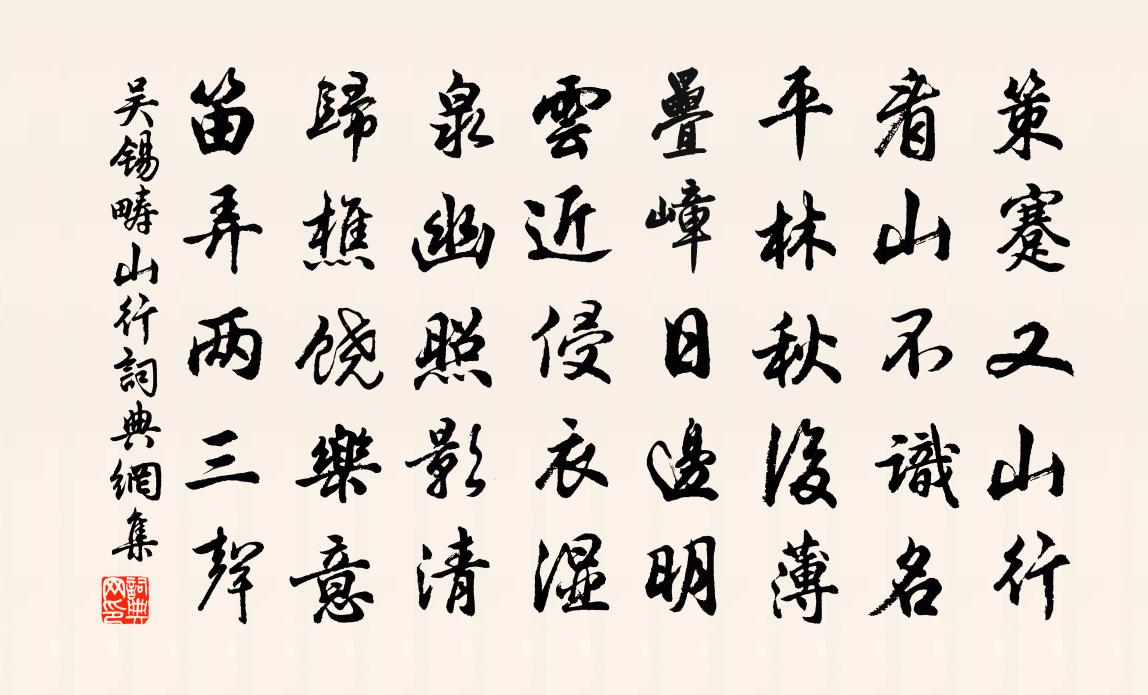 策蹇又山行
看山不識名
平林秋後薄
疊嶂日邊明
雲近侵衣濕
泉幽照影清
歸樵饒樂意
笛弄两三聲
吳錫疇山行詞典網集
詞典网印